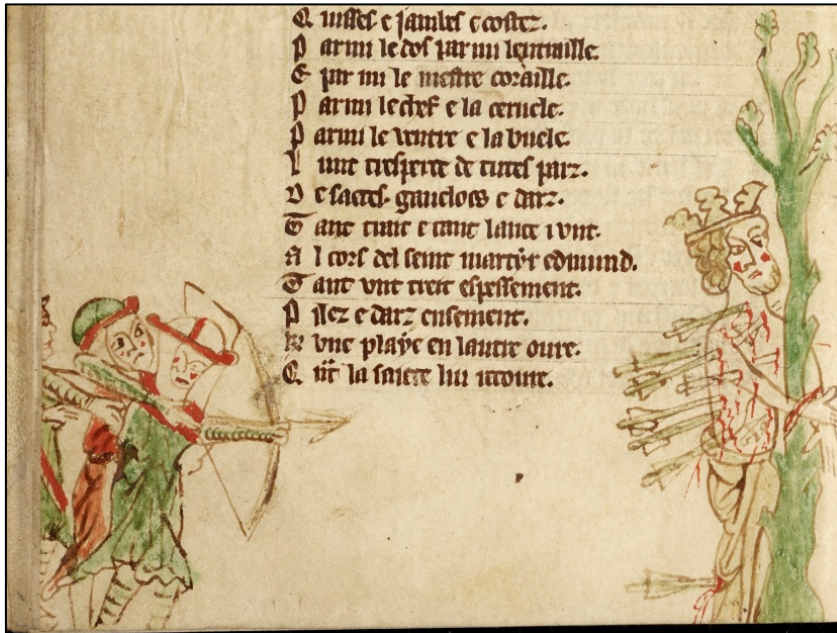 Q uisses e jambes e costez.
P armi le dos par mi lentraille.
E par mi le mestre coraille.
P armi le chef e la ceruele.
P armi le ventre e la buele.
L unt tresperce de tutes parz.
D e saetes. gauelocs e darz.
T ant trait e tant lance i unt.
A l cors del seint martyr edmund.
T ant unt treit espessement.
P ilez e darz ensement.
K vne playe en lautre oure.
Q nt la saiete lui